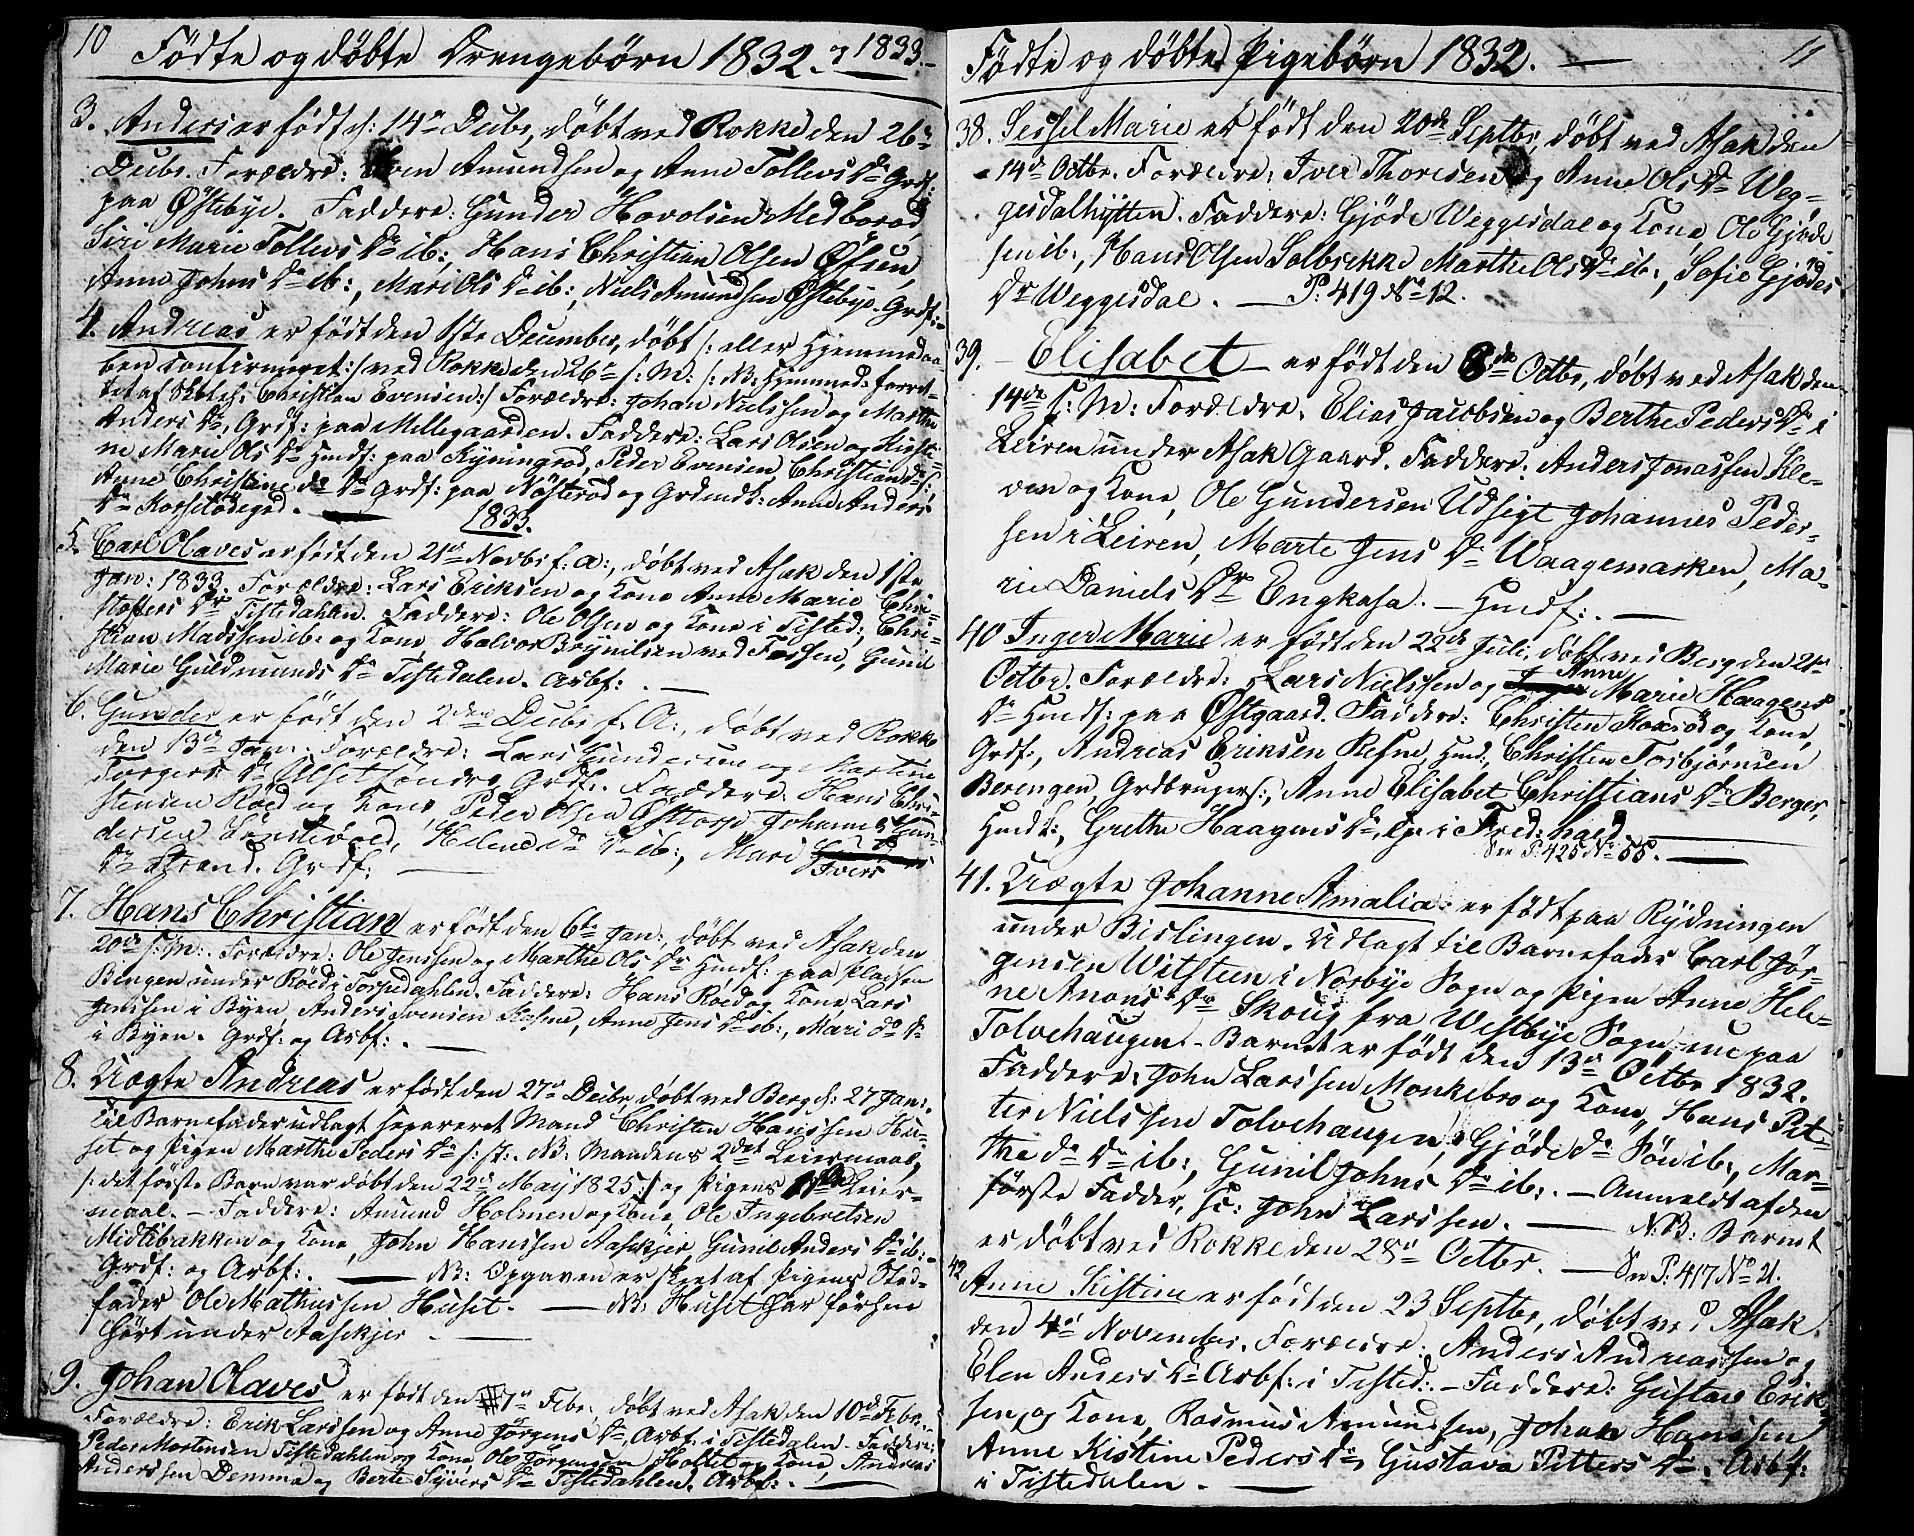 10 Fødte og døbte Drengebørn 1832. & 1833.
3. Anders er født d: 14de Decbr, døbt ved Rokke den 26de
Decbr. Forældre: Amundsen og Anne Tollevs Dr Grdf:
paa Østebye. Faddere: Gunder Hovolsen Medborød
Siri Marie Tollevs Dr ib:, Hans Christian Olsen
Anne Johns Dr ib:, Mari Ols Dr ib:, Niels Amundsen Østebye. Grdf:
4. Andreas er født den 1ste December, døbt /: eller Hjemmedaa-
ben confirmeret :/ ved Rokke den 26de s: M: /: NB: Hjemmed: forret-
tet af Christen Evensen :/ Forældre: Johan Nielssen og Marthe
Anders Dr, Grdf: paa Millegaarden. Faddere: Lars Olsen og Kirsti-
ne Marie Ols Dr Hmdf: paa Rÿningrød, Peder Evensen, Christian do
Anne Christine do Dr Grdf: paa Nøsterød og Anne Anders
Dr
1833.
5. Carl Olaves er født den 21de Novbr f: a:, døbt ved Asak den 1ste
Jan: 1833. Forældre: Lars Eriksen og Kone Anne Marie Chri-
stoffers Dr Tistedahlen. Faddere: Ole Olsen og Kone i Tisted:, Chri-
stian Madssen ib: og Kone, Halvor Brynilsen ved Fossen, Gunil
Marie Guldmunds Dr Tistedalen. Arbf:.
6. Gunder er født den 2den Decbr f: A:, døbt ved Rokke
den 13de Jan: Forældre: Lars Gundersen og Martine
Torgers Dr Ulset søndre, Grdf:. Faddere: Hans Chri-
stensen Røed og Kone, Peder Olsen Østtorp, Johannes Gun-
dersen Lenstevold, Helene do Dr ib:, Mari
Ivers
Dr Strand. Grdf:
7. Hans Christian er født den 6te Jan:, døbt ved Asak den
20de s: M: Forældre: Ole Jenssen og Marthe Ols Dr Hmdf: paa Pladsen
Bengen under Røed i Torpedahlen. Faddere: Hans Røed og Kone, Lars
Jenssen i Byen, Anders Svensen, Anne Jens Dr ib:, Mari do Dr
i Byen. Grdf: og Arbf:.
8. Uægte Andreas er født den 27de Decbr, døbt ved Berg d: 27 Jan:.
Til Barnefader udlagt separeret Mand Christen Hanssen Hu-
set og Pigen Marthe Peders Dr s: st:. NB: Mandens 2det Leiermaal,
/: det første Barn var døbt den 22de Maij 1825 :/ og Pigens 1ste Leier-
maal. – Faddere: Amund Holmen og Kone, Ole Ingebretsen
Midtibakken og Kone, John Hanssen Aasekjer, Gunil Anders Dr ib:.
Grdf: og Arbf:. — NB: Opgaven er skeet af Pigens Sted-
fader Ole Mathiessen Huset. — NB: Huset har førhen
hørt under Aasekjer
9. Johan Olaves er født den 7de Febr:, døbt ved Asak den 10de Febr:.
Forældre: Erik Larssen og Anne Jørgens Dr, Arbf: i Tistedalen. Faddere:
Peder Mortensen Tistedahlen og Kone, Ole Jørgensen Hollet og Kone, Andreas
Anderssen Demma og Berte Syvers Dr Tistedahlen. Arbf:.
Fødte og døbte Pigebørn 1832. — 11
38. Sessel Marie er født den 20de Septbr, døbt ved Asak den
14de Octbr. Forældre: Iver Thoresen og Anne Ols Dr Weg-
gesdalhytten. Faddere: Gjøde Weggesdal og Kone, Ole Gjøde
sen ib:, Hans Olsen Solbrekke Marthe Ols Dr ib:, Sofie Gjødes
Dr Weggesdal. — P: 419 No 12.
39. Elisabet – er født den 6de Octbr, døbt ved Asak den
14de s: M: Forældre: Elias Jacobsen og Berthe Peders Dr i
Leiren under Asak Gaard. Faddere: Anders Jonassen Kle-
ven og Kone, Ole Gundersen Udsigt Johannes Peder-
sen i Leiren, Marte Jens Dr Waagemarken, Ma-
rie Daniels Dr Engkasa. – Hmdf:. —
40 Inger Marie er født den 22de Juli, døbt ved Berg den 21de
Octbr. Forældre: Lars Nielssen og Anne Marie Haagens
Dr Hmdf: paa Østgaard. Faddere: Christen Kaxrød og Kone,
Grdf:, Andreas Eriksen Refne, Hmd:, Christen Torbjørnsen
Berengen, Grdbruger:, Anne Elisabet Christians Dr Berger,
Hmdt:, Grethe Haagens Dr, i Fred:hald.
See P: 425 No 55. —
41. Uægte Johanne Amalia er født paa Rydningen
under Bislingen. Udlagt til Barnefader Carl Jør-
gensen Witsteen i Norbye Sogn og Pigen Anne Hele-
ne Anons Dr Skoug fra Westbye Sogn, nu paa
Tolvehaugen. – Barnet er født den 13de Octbr 1832.
Faddere: John Larssen Monkebro og Kone, Hans Pet-
ter Nielssen Tolvehaugen, Gjøde do Søn ib:, Mar-
the do Dr ib:, Gunil Johns Dr ib:. – Anmeldt af den
første Fadder, sc: John Larssen. — NB: Barnet
er døbt ved Rokke den 28de Octbr. — See P: 417 No 21.
42 Anne Kistine er født den 23 Septbr, døbt ved Asak
den 4de November. Forældre: Anders Andreassen og
Elen Anders Dr Arbf: i Tisted:. – Faddere: Gustav Erik-
sen og Kone, Rasmus Amundsen, Johan Hanssen
Anne Kistine Peders Dr, Gustava Pitters Dr. Arbf:
i Tistedalen. —